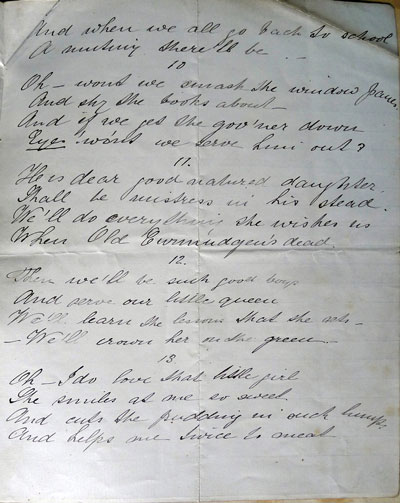 And when we all go back to school
A mutiny there'll be
10
Oh - wont we smash the window panes
And shy the books about
And if we get the gov'ner down
Eyes! wont we serve him out?
11.
His dear good natured daughter,
Shall be mistress in his stead.
We'll do everything she wishes us
When Old Curmudgeon's dead.
12.
Then we'll be such good boys
And serve our little queen
We'll learn the lessons that she sets -
- We'll crown her on the green -
13
Oh - I do love that little girl
She smiles at me so sweet
And cuts the pudding in such lumps
And helps me twice to meat